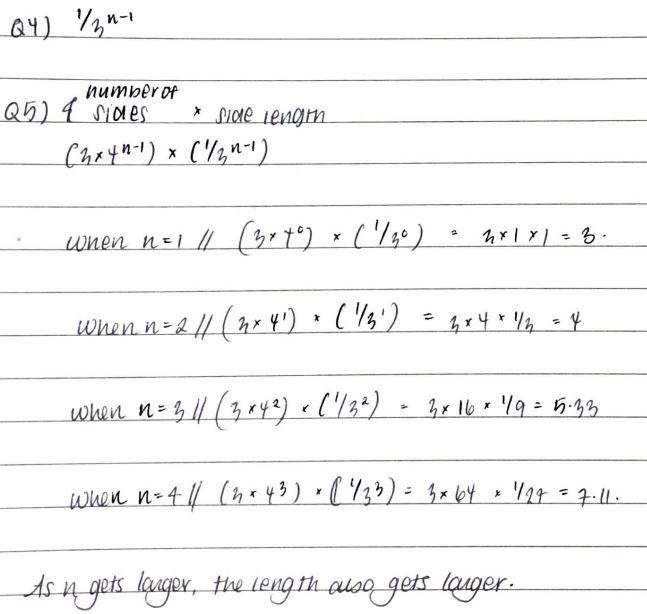 Q4) 1/3ⁿ⁻¹
number of
Q5) sides × side length
(3×4ⁿ⁻¹) × (1/3ⁿ⁻¹)
when n=1 // (3×4⁰) × (1/3⁰) = 3×1×1 = 3.
when n=2 // (3×4¹) × (1/3¹) = 3×4×1/3 = 4
when n=3 // (3×4²) × (1/3²) = 3×16×1/9 = 5.33
when n=4 // (3×4³) × (1/3³) = 3×64 × 1/27 = 7.11.
As n gets larger, the length also gets larger.